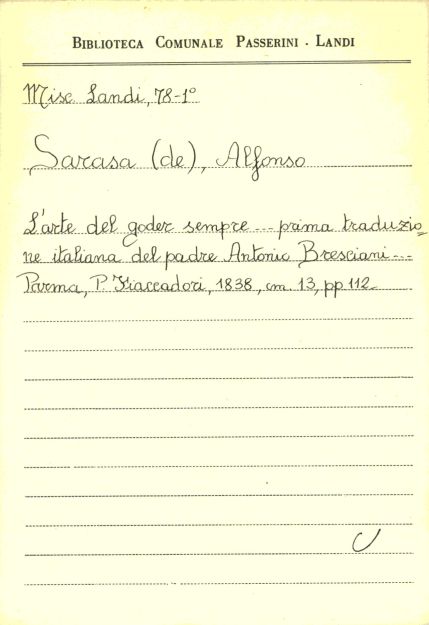 BIBLIOTECA COMUNALE PASSERINI - LANDI
Misc Landi, 78-1°
Sarasa (de), Alfonso
L'arte del goder sempre --- prima traduzio=
ne italiana del padre Antonio Bresciani ---
Parma, P. Fiaccadori, 1838, cm. 13, pp 112